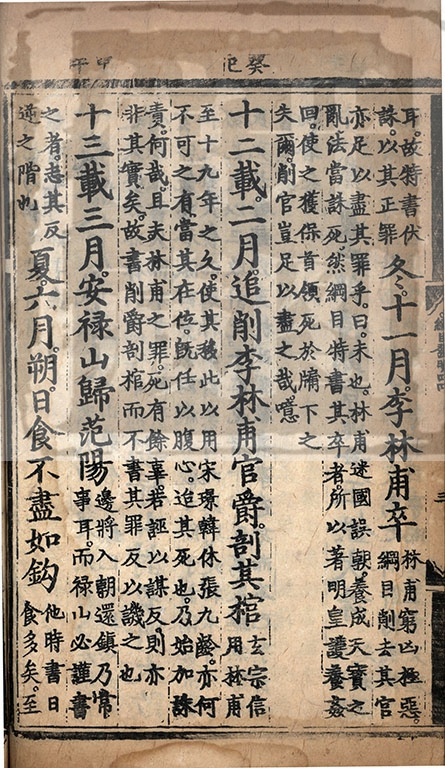 癸巳
甲午
耳。故特書伏
誅。以其正罪
冬。十一月。李林甫卒
林甫窮凶極惡。
綱目削去其官
亦足以盡其罪乎。曰。未也。林甫迷國誤朝。養成天寶之
亂法當誅死。然綱目特書其卒者。所以著明皇護養姦
回。使之獲保首領死於牖下之
失爾。削官豈足以盡之哉。噫
十二載。二月。追削李林甫官爵。剖其棺
玄宗信
用林甫
至十九年之久。使其移此以用宋璟韓休張九齡。亦何
不可之有。當其在位。既任以腹心。迨其死也。乃始加誅
責。何哉。且夫林甫之罪。死有餘辜。若誣以謀反。則亦
非其實矣。故書削爵剖棺而不書其罪反以譏之也
十三載三月。安禄山歸范陽
邊將入朝還鎮。乃常
事耳。而禄山必謹書
之者。志其反
逆之階也
夏。六月。朔。日食不盡如鈎
他時書日
食多矣。至